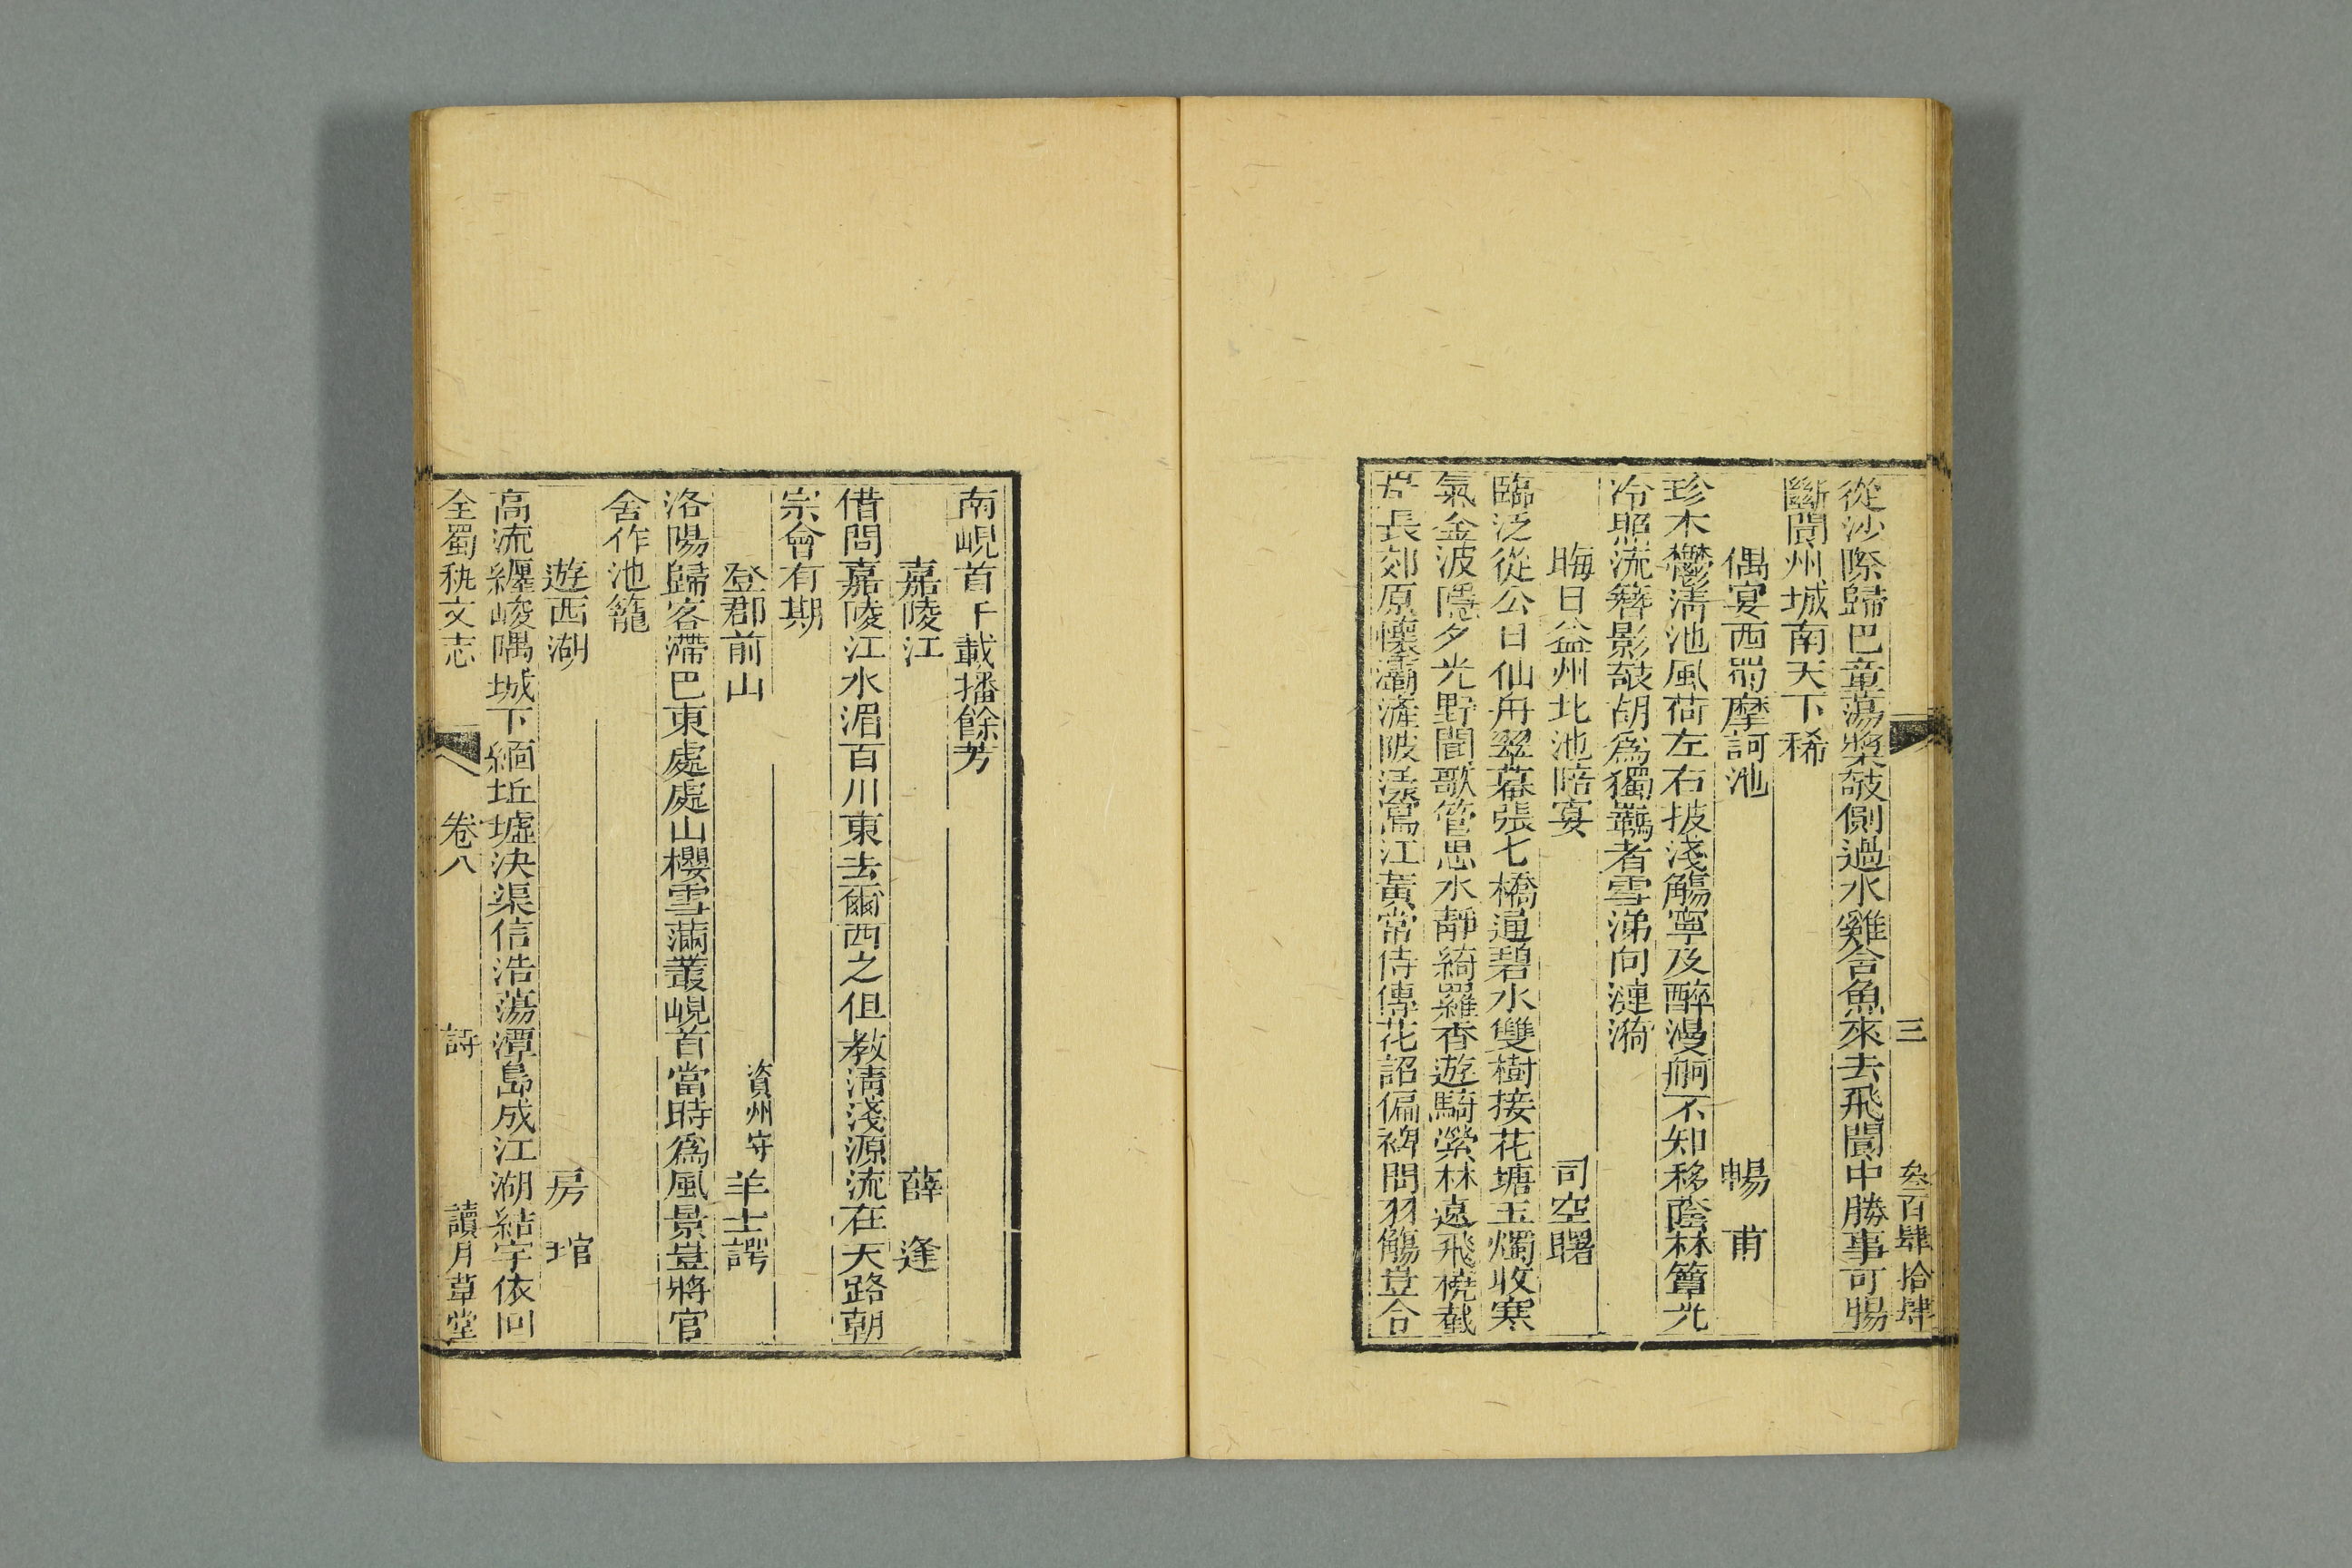 三 叁百肆拾肆
從沙際歸巴童蕩槳欹側過水雞銜魚來去飛閬中勝事可腸
斷閬州城南天下稀
偶宴西蜀摩訶池 暢甫
珍木鬱清池風荷左右披淺觴寧及醉漫舸不知移蔭林簟光
冷照流簪影欹胡爲獨羈者雪涕向漣漪
晦日益州北池陪宴 司空曙
臨泛從公日仙舟翠幕張七橋通碧水雙樹接花塘玉燭收寒
氣金波隱夕光野聞歌管思水靜綺羅香遊騎縈林遠飛橈截
岸長郊原懷灞滻陂漾寫江黃常侍傳花詔偏裨問羽觴豈令
南峴首千載播餘芳
嘉陵江 薛逢
借問嘉陵江水湄百川東去爾西之但教清淺源流在天路朝
宗會有期
登郡前山 資州守羊士諤
洛陽歸客滯巴東處處山櫻雪滿叢峴首當時爲風景豈將官
舍作池籠
遊西湖 房琯
高流纏峻隅城下緬坵墟決渠信浩蕩潭島成江湖結宇依回
全蜀秇文志 卷八 詩 讀月草堂